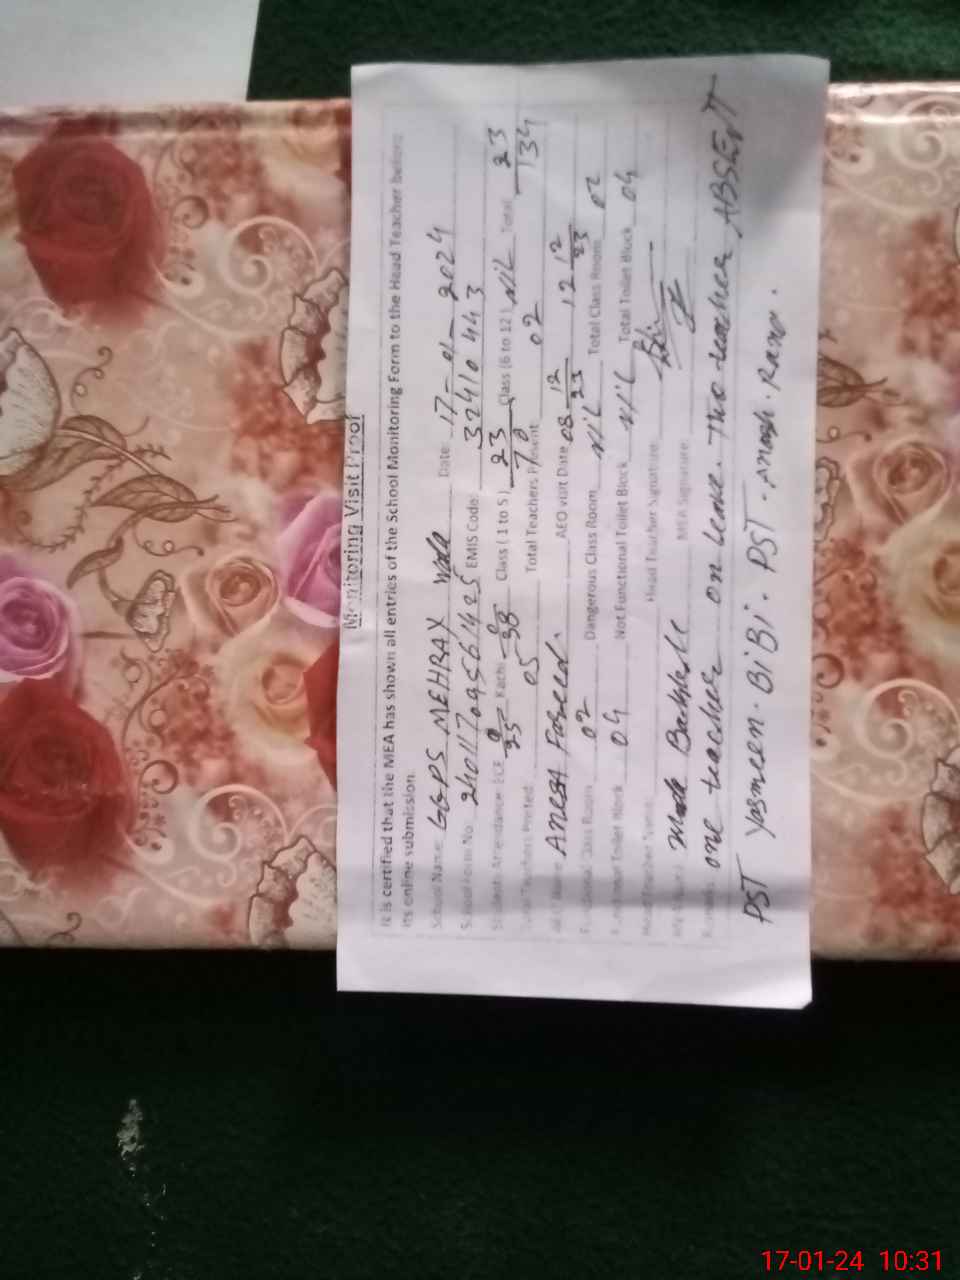 Monitoring Visit Proof
It is certified that the MEA has shown all entries of the School Monitoring Form to the Head Teacher before
its online submission.
School Name: GGPS MEHRAY Wala Date: 17-01-2024
School Form No EMIS Code: 32410443
Students Attendance: ECE 0/35 Kachi 0/38 Class (1 to 5) 23/70 Class (6 to 12) NIL Total 23/134
Total Teachers Posted: 05 Total Teachers Present 02
Fareed AEO visit Date 08 12/23 12 12/23
Functional Class Room 02 Dangerous Class Room NIL Total Class Room 02
Functional Toilet Block 04 Not Functional Toilet Block NIL Total Toilet Block 04
Head Teacher Name: Head Teacher Signature:
MEA Signature
one teacher on Leave. Two teacher ABSENT
PST Yasmeen. BiBi. PST.
17-01-24 10:31